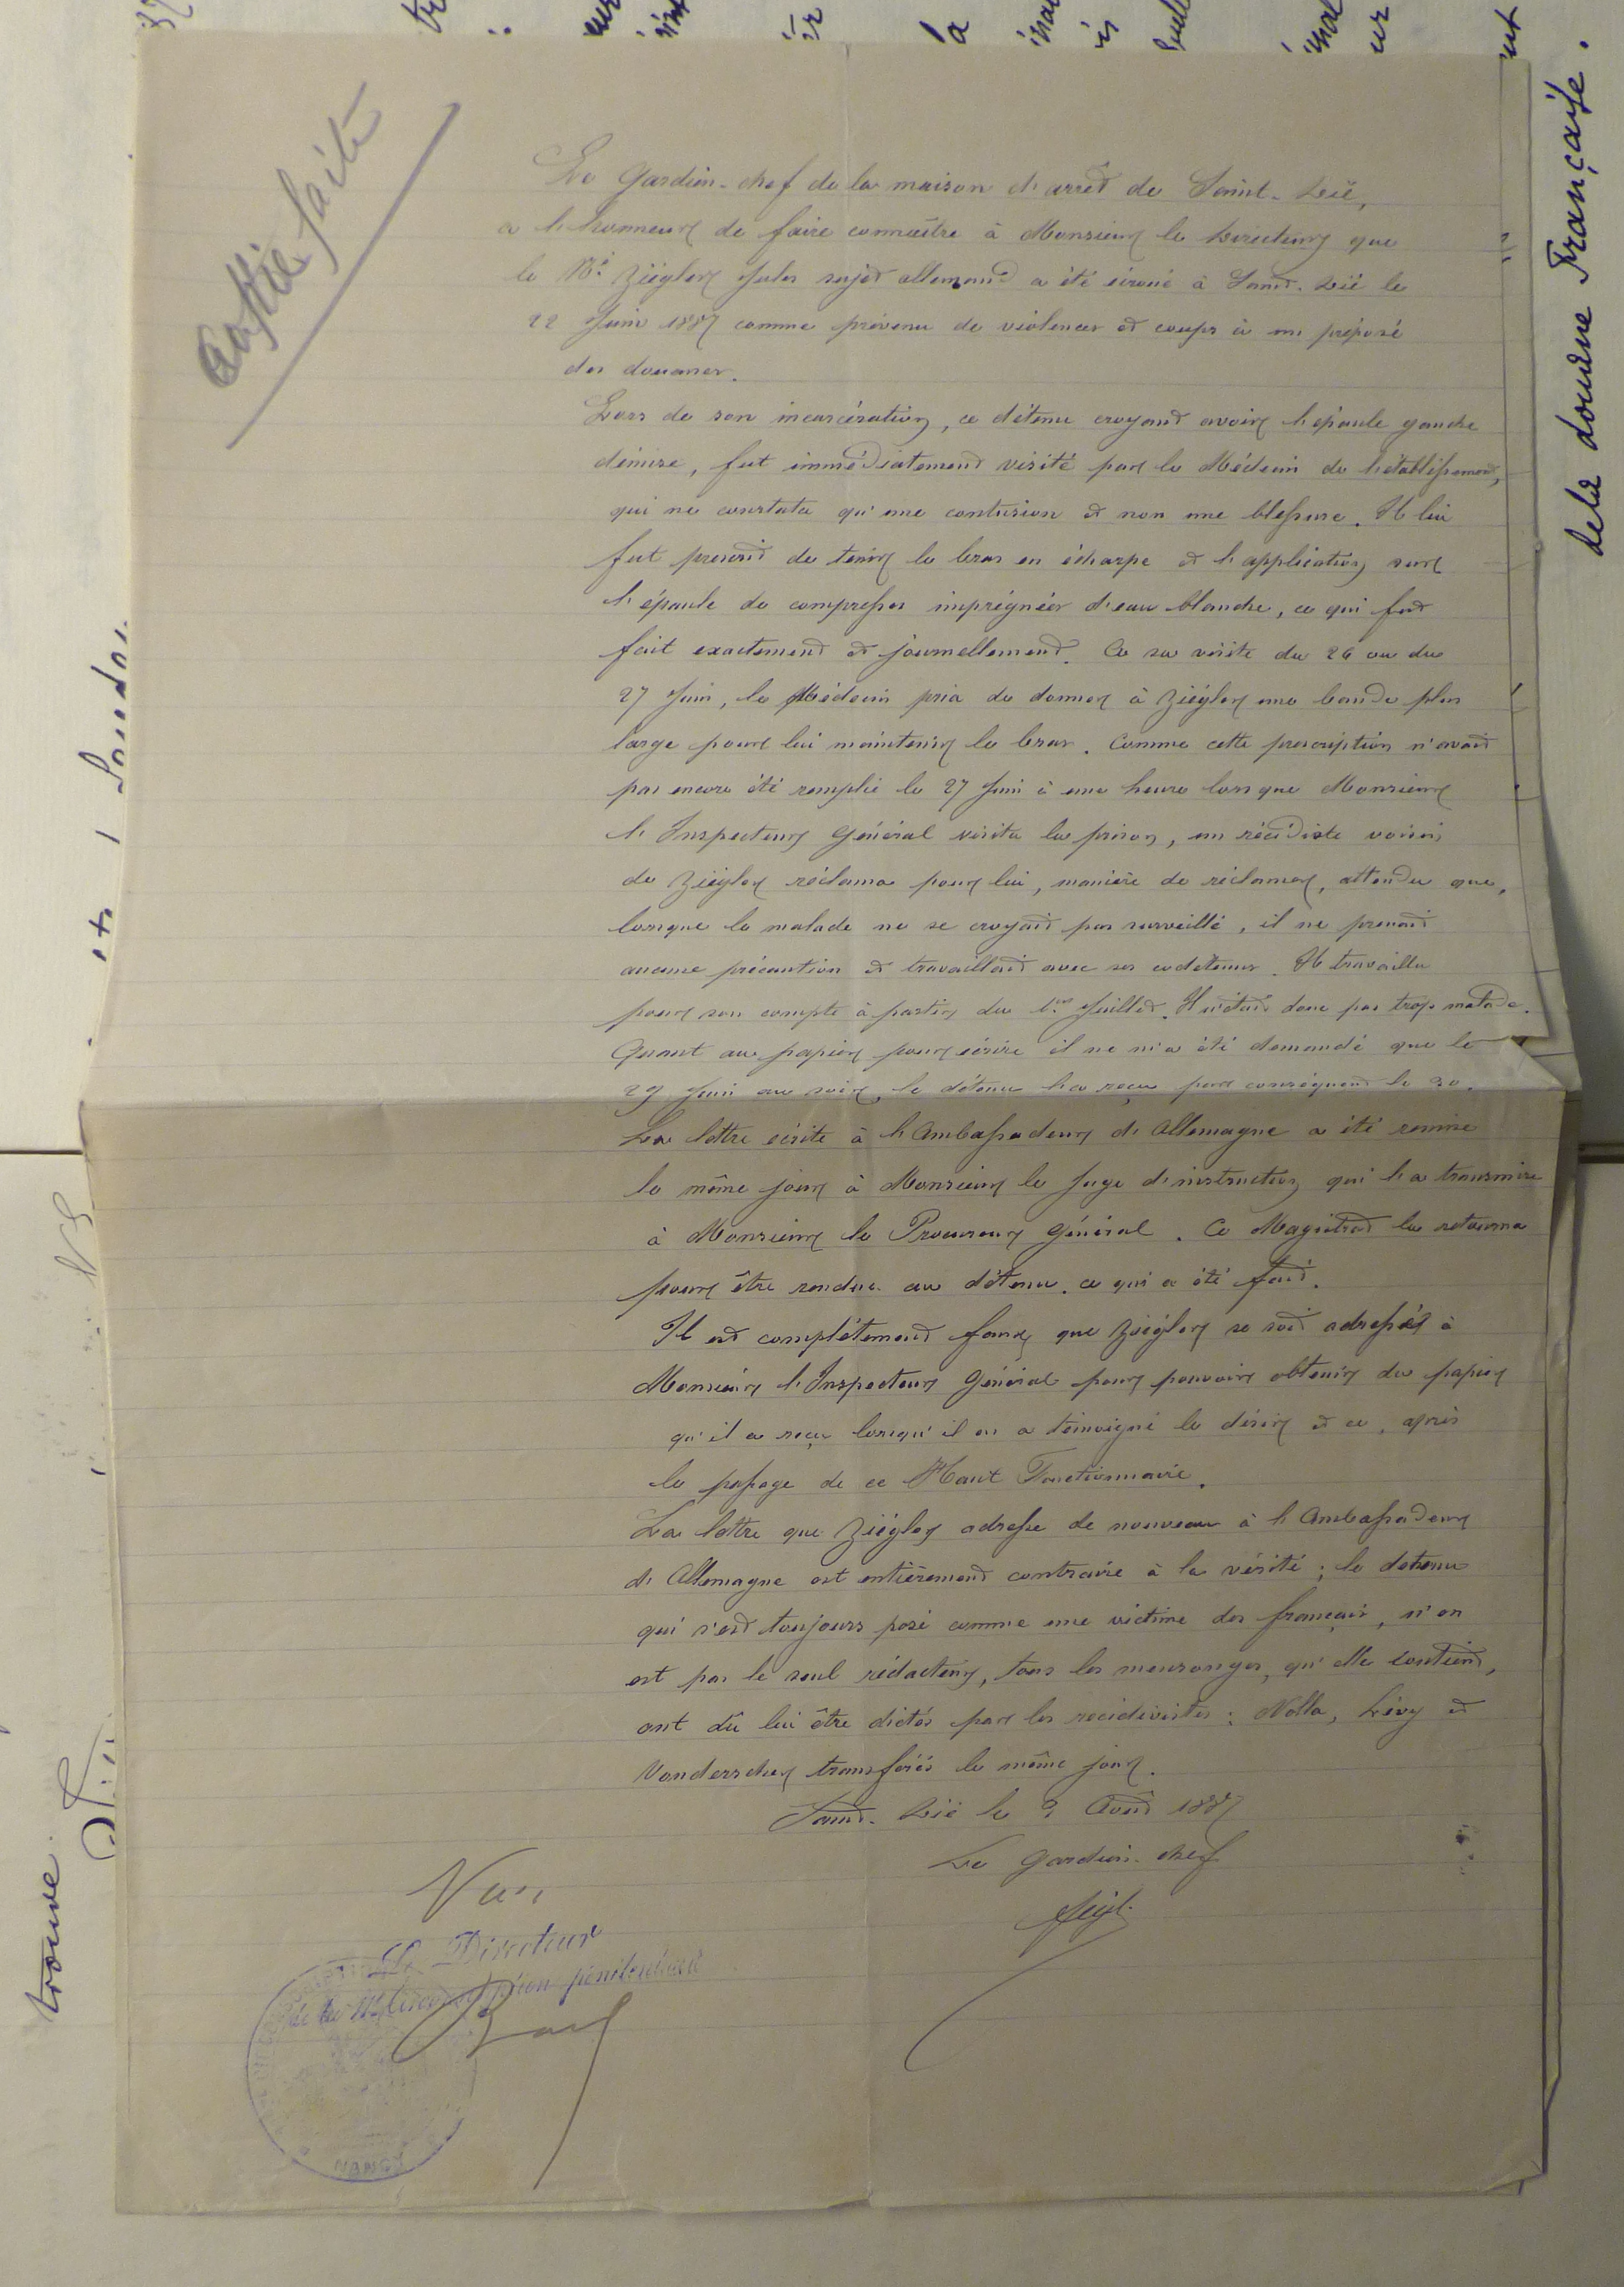 Copie faite
Le Gardien-chef de la maison d'arrêt de Saint-Dié,
a l'honneur de faire connaître à Monsieur le Directeur que
le Né Ziégler Jules sujet allemand a été écroué à Saint-Dié le
22 Juin 1887 comme prévenu de violences et coups à un préposé
des douanes.
Lors de son incarcération, ce détenu croyant avoir l'épaule gauche
démise, fut immédiatement visité par le Médecin de l'établissement,
qui ne constata qu'une contusion et non une blessure. Il lui
fut prescrit de tenir le bras en écharpe et l'application sur
l'épaule de compresses imprégnées d'eau blanche, ce qui fut
fait exactement et journellement. A sa visite du 26 ou du
27 Juin, le Médecin pria de donner à Ziégler une bande plus
large pour lui maintenir le bras. Comme cette prescription n'avait
pas encore été remplie le 27 Juin à une heure lorsque Monsieur
l'Inspecteur Général visita la prison, un récidiste voisin
de Ziégler réclama pour lui, manière de réclamer, attendu que,
lorsque le malade ne se croyait pas surveillé, il ne prenait
aucune précaution et travaillait avec ses codétenus. Il travailla
pour son compte à partir du 1er Juillet. Il n'était donc pas trop malade.
Quant au papier pour écrire il ne m'a été demandé que le
29 Juin au soir, le détenu l'a reçu par conséquent le 30.
La lettre écrite à l'Ambassadeur d'Allemagne a été remise
le même jour à Monsieur le Juge d'instruction qui l'a transmise
à Monsieur le Procureur Général. Ce Magistrat la retourna
pour être rendue au détenu, ce qui a été fait.
Il est complétement faux que Ziégler se soit adressé à
Monsieur l'Inspecteur Général pour pouvoir obtenir du papier
qu'il a reçu lorsqu'il en a témoigné le désir et ce, après
le passage de ce Haut Fonctionnaire.
La lettre que Ziégler adresse de nouveau à l'Ambassadeur
d'Allemagne est entièrement contraire à la vérité ; le detenu
qui s'est toujours posé comme une victime des français, n'en
est pas le seul rédacteur, tous les mensonges, qu'elle contient,
ont dû lui être dictés par les récidivistes : Nolla, Lévy et
Vanderscher transférés le même jour.
Saint-Dié le 2 Août 1887
Le Gardien-chef
Vu,
Le Directeur
de la circonscription pénitentiaire
NANCY
de la douane Française.
trouve